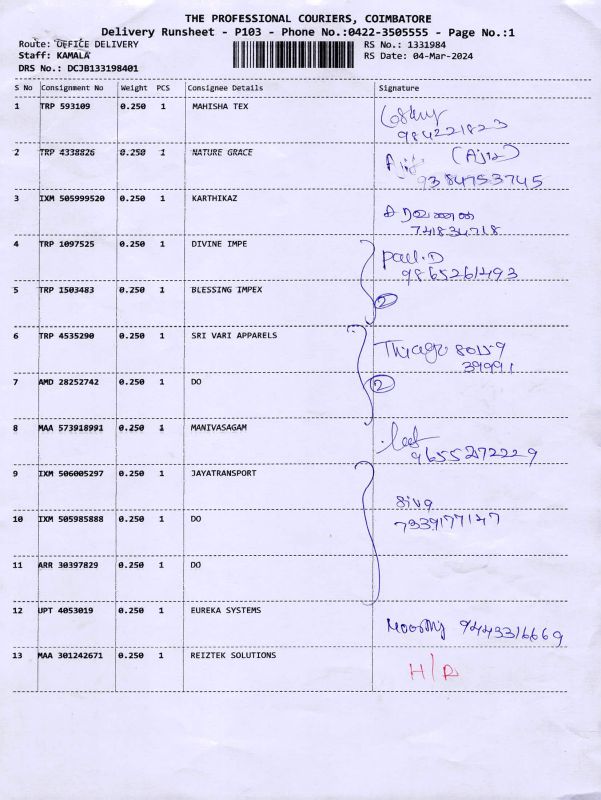 THE PROFESSIONAL COURIERS, COIMBATORE
Delivery Runsheet - P103 - Phone No.:0422-3505555 - Page No.:1
Route: OFFICE DELIVERY RS No.: 1331984
Staff: KAMALA RS Date: 04-Mar-2024
DRS No.: DCJB133198401
S No Consignment No Weight PCS Consignee Details Signature
1 TRP 593109 0.250 1 MAHISHA TEX
984221823
2 TRP 4338826 0.250 1 NATURE GRACE (Ajis)
9384753745
3 IXM 505999520 0.250 1 KARTHIKAZ
741834718
4 TRP 1097525 0.250 1 DIVINE IMPE Paul.D
9865261493
5 TRP 1503483 0.250 1 BLESSING IMPEX 2
6 TRP 4535290 0.250 1 SRI VARI APPARELS 80159
39991
7 AMD 28252742 0.250 1 DO 2
8 MAA 573918991 0.250 1 MANIVASAGAM
9655272229
9 IXM 506005297 0.250 1 JAYATRANSPORT
Siva
10 IXM 505985888 0.250 1 DO 7339177147
11 ARR 30397829 0.250 1 DO
12 UPT 4053019 0.250 1 EUREKA SYSTEMS Moorthy 9443316669
13 MAA 301242671 0.250 1 REIZTEK SOLUTIONS H/R